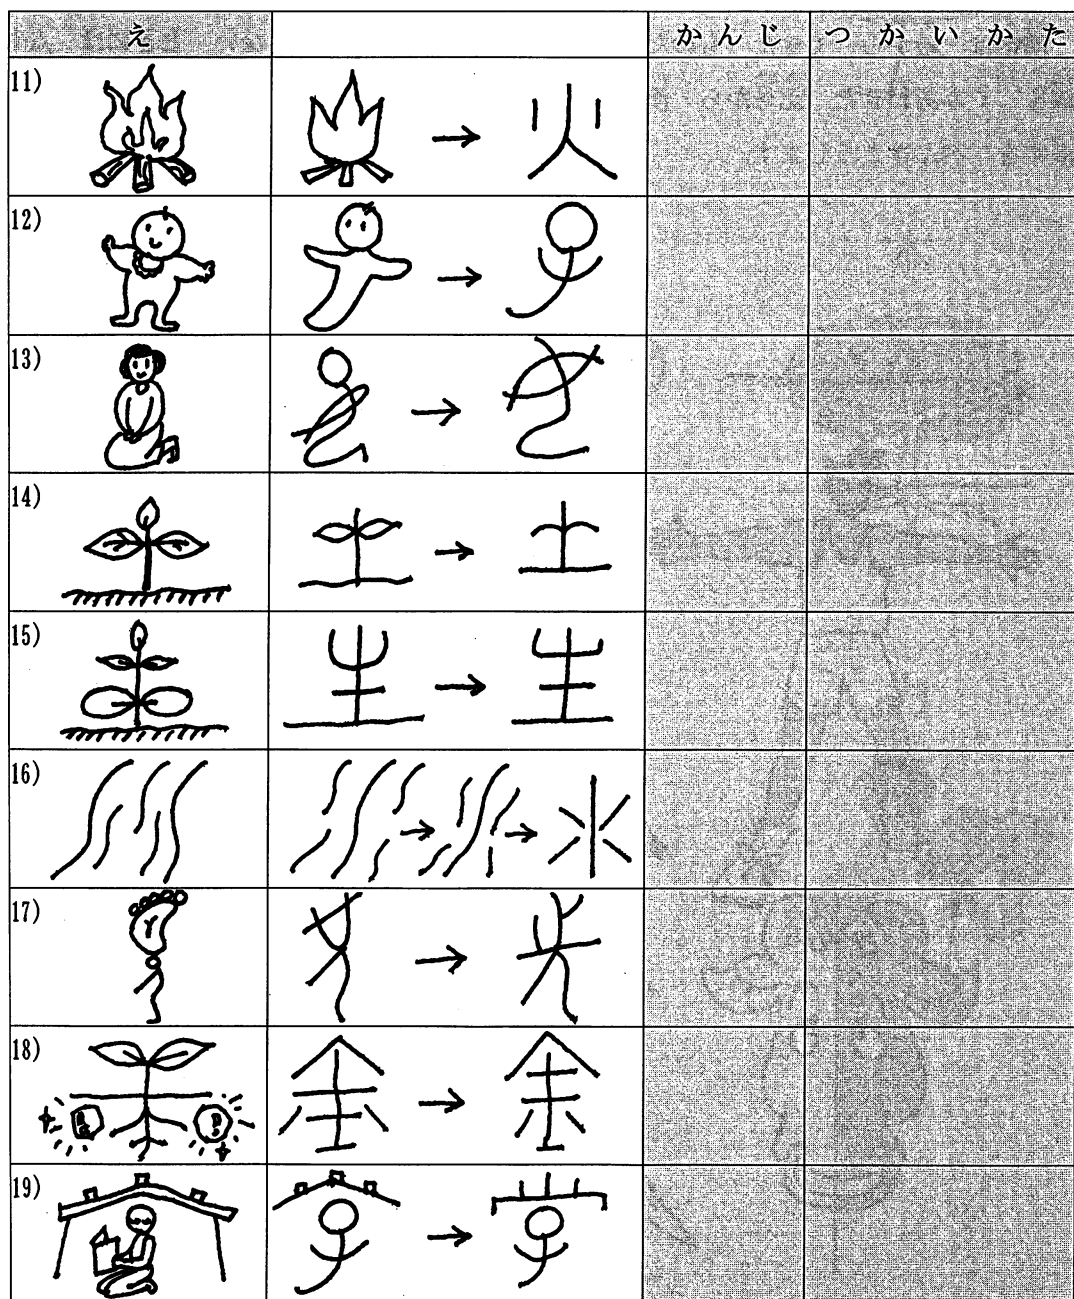 え かんじ つかいかた
11) 火
12)
13)
14) 土
15) 生
16) 水
17)
18)
19)